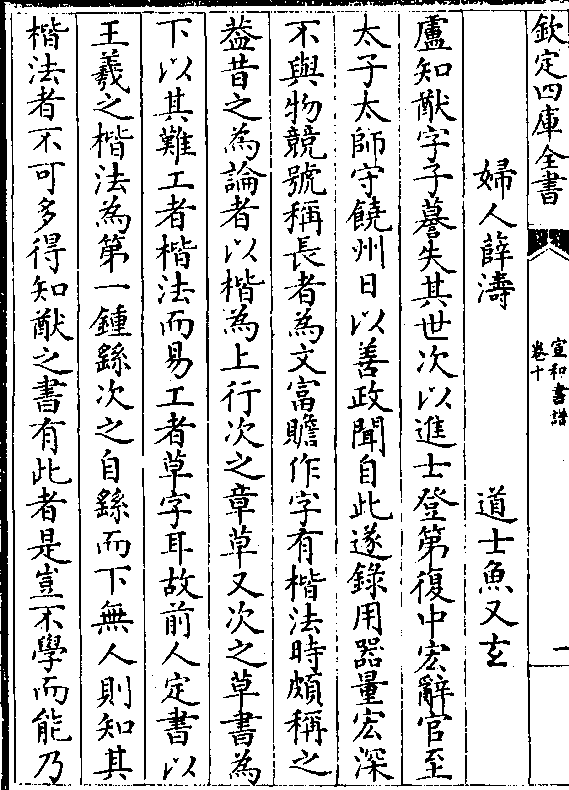 欽定四庫全書
宣和書譜
卷十
一
婦人薛濤 道士魚又玄
盧知猷字子蕃失其世次以進士登第復中宏辭官至
太子太師守饒州日以善政聞自此遂錄用器量宏深
不與物競號稱長者為文富贍作字有楷法時頗稱之
葢昔之為論者以楷為上行次之章草又次之草書為
下以其難工者楷法而易工者草字耳故前人定書以
王羲之楷法為第一鍾繇次之自繇而下無人則知其
楷法者不可多得知猷之書有此者是豈不學而能乃